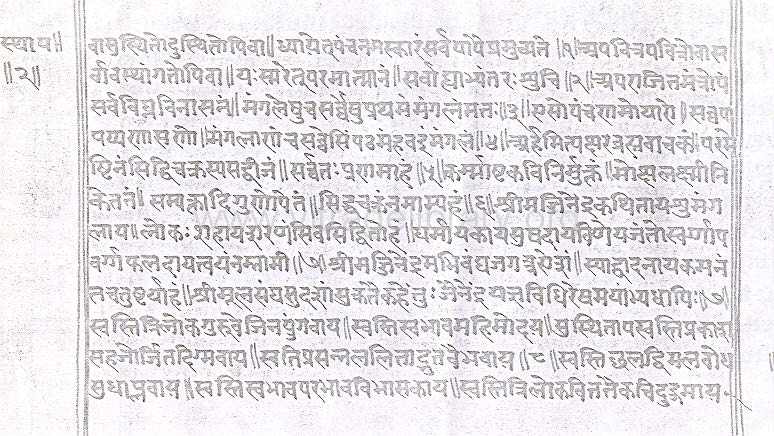 स्थाप॥ वासुस्थितोदुस्थितोपिवा॥ध्यायेत्पंचनमस्कारंसर्वपापैप्रमुच्यते॥१॥अपवित्रपवित्रोवास
॥२॥ र्वावस्थांगतोपिवा॥यःस्मरेत्परमात्मानं॥सर्वाह्याभ्यंतरःशुचि॥२॥अपराजितमंत्रोपं
सर्वविघ्नविनासनं॥मंगलेषुचसर्वेषुप्रथमंमंगलंमतः॥३॥एसोपंचणमोयारो॥सव्वपा
पप्पणासणो॥मंगलाणंचसव्वेसिंपढमंहवइमंगलं॥४॥अर्हमित्यक्षरंब्रह्मवाचकं॥परमे
ष्टिनंसिद्धिचक्रस्यसद्वीजं॥सर्वतःप्रणमाम्यहं॥५॥कर्म्माष्टकविनिर्मुक्तं॥मोक्षलक्ष्मीनि
केतनं॥सम्यक्तादिगुणोपेतं॥सिद्धचक्रंनमाम्यहं॥६॥श्रीमज्जिनेंद्रकथितायशुमंग
लाय॥लोकः
वर्ग्गफलदाय श्रीमज्जिनेंद्रमभिवंद्यजगत्रयेशं॥स्याद्वादनायकमनं
तचतुष्टयार्हं॥श्रीमूलसंघसुदृशांसुकृतैकहेतुः जैनेंद्रयज्ञविधिरेषमयाभ्यधायिः॥७॥
स्वस्तित्रिलोकगुरुवेजिनपुंगवाय॥स्वस्तिस्वभावमहिमोदय॥सुस्थितायस्वस्तिप्रकाश
सहजोर्जितदिग्मयाय॥स्वतिप्रसन्नललिताद्भुतवैभवाय॥८॥स्वस्तिछलद्विमलबोध
सुधाप्लवाय॥स्वस्तिस्वभावपरभावविभासकाय॥स्वस्तित्रिलोकविततैकचिदुद्गमाय